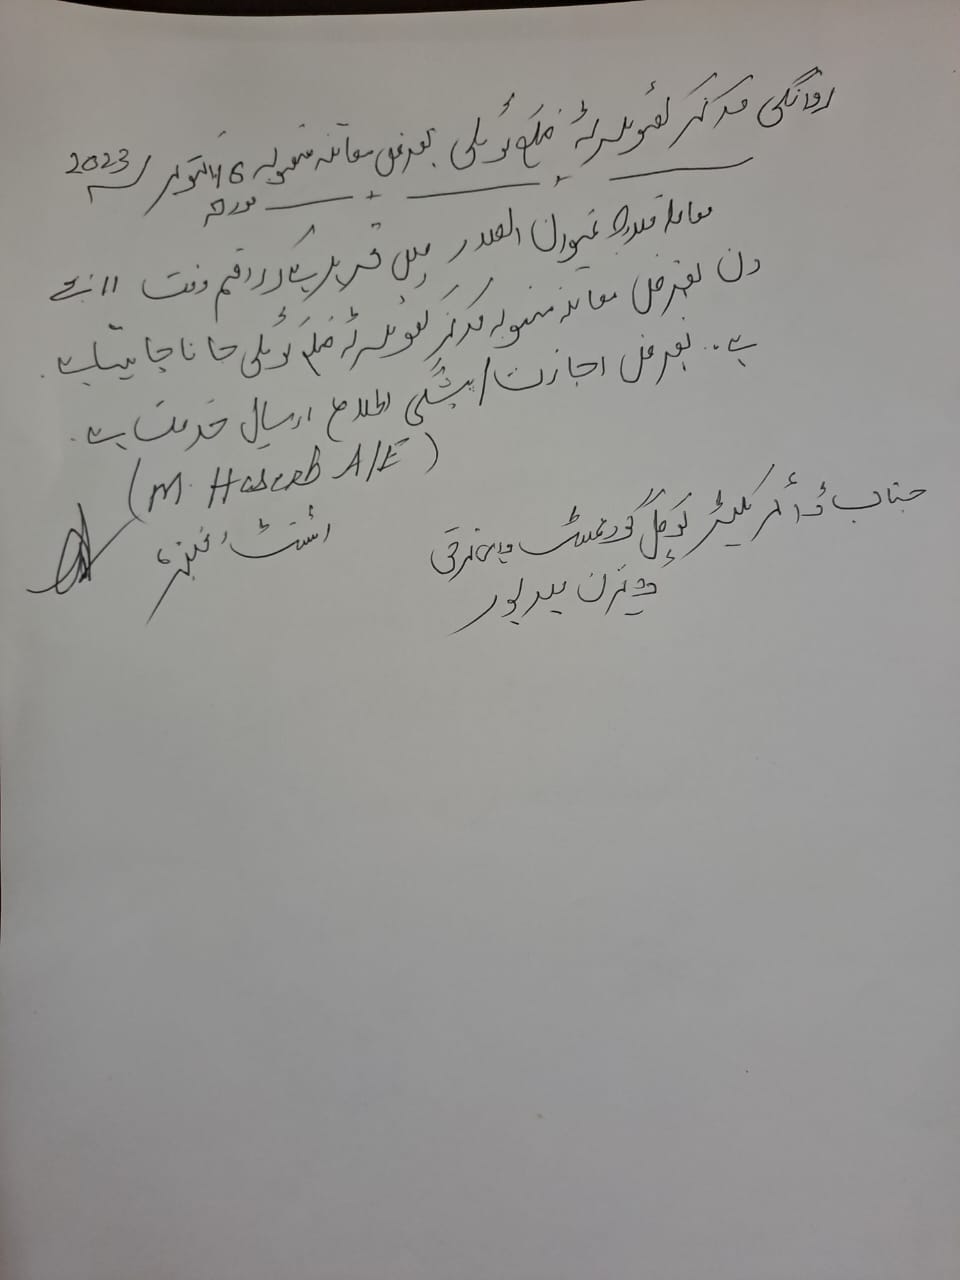 روانگی مرکز کھوئیرٹہ ضلع کوٹلی بغرض معائنہ منصوبہ 6 اکتوبر 2023
مورخہ
معاملہ مندرجہ عنوان الصدر میں تحریر ہیکہ راقم وقت 11 بجے
دن بغرض معائنہ منصوبہ مرکز کھوئیرٹہ ضلع کوٹلی جانا چاہتا ہے.
ہے.. بغرض اجازت/پیشگی اطلاع ارسال خدمت ہے.
(M. Haseeb A/E)
اسسٹنٹ انجینئر
جناب ڈائریکٹر لوکل گورنمنٹ دیہی ترقی
ڈویژن میرپور